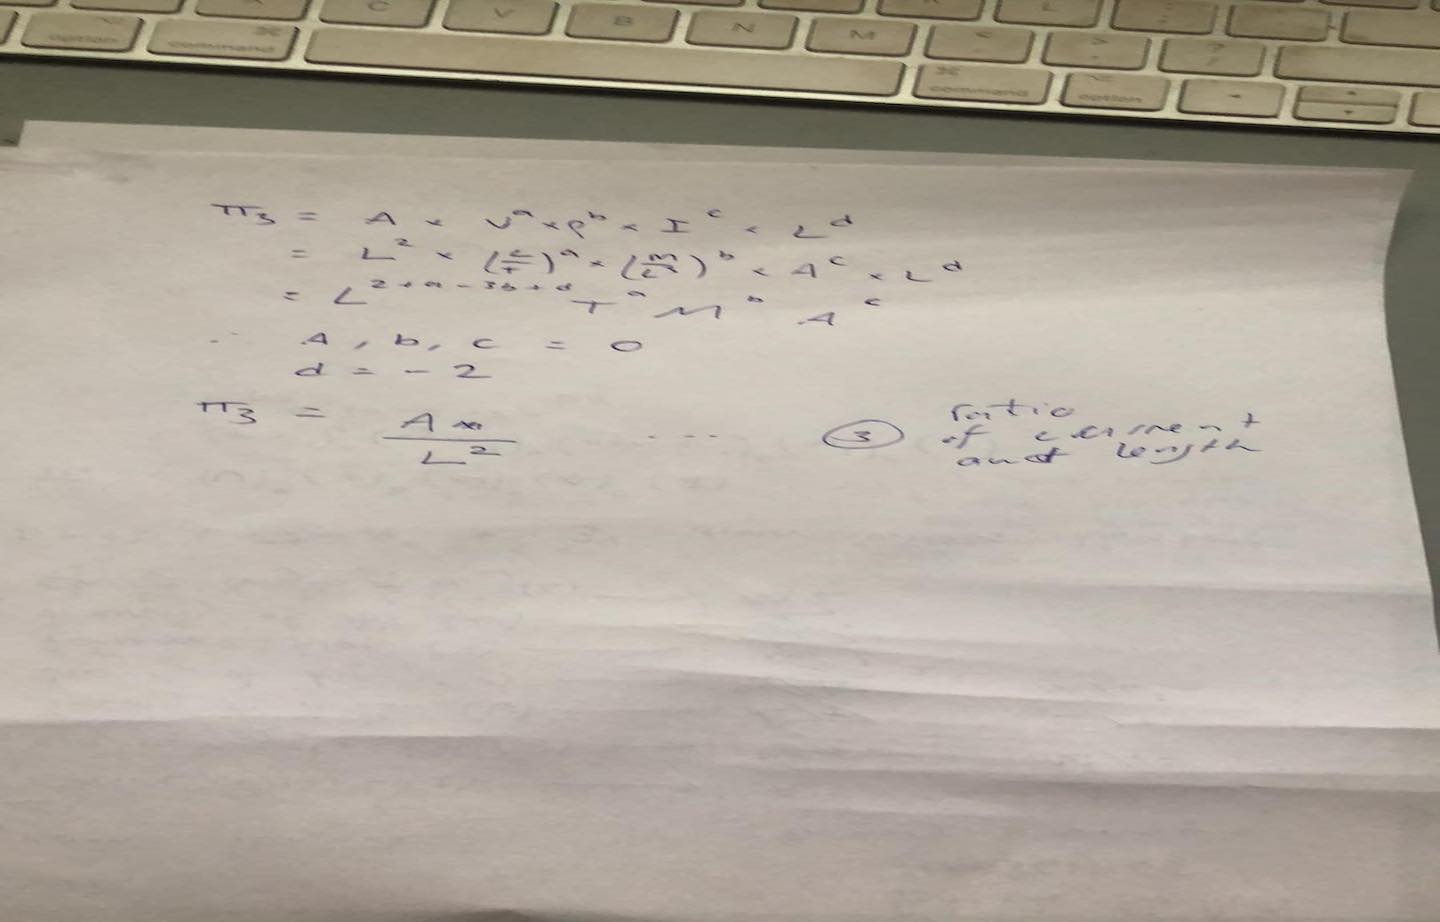 C V B N M < > ? /
option ⌘ command ⌘ command ⌥ option
π₃ = A × vᵃ × ρᵇ × Iᶜ × Lᵈ
= L² × (L/T)ᵃ × (M/L³)ᵇ × Aᶜ × Lᵈ
= L²⁺ᵃ⁻³ᵇ⁺ᵈ Tᵃ Mᵇ Aᶜ
∴ A, b, c = 0
d = - 2
π₃ = A / L² ... ③ ratio
of current
and length